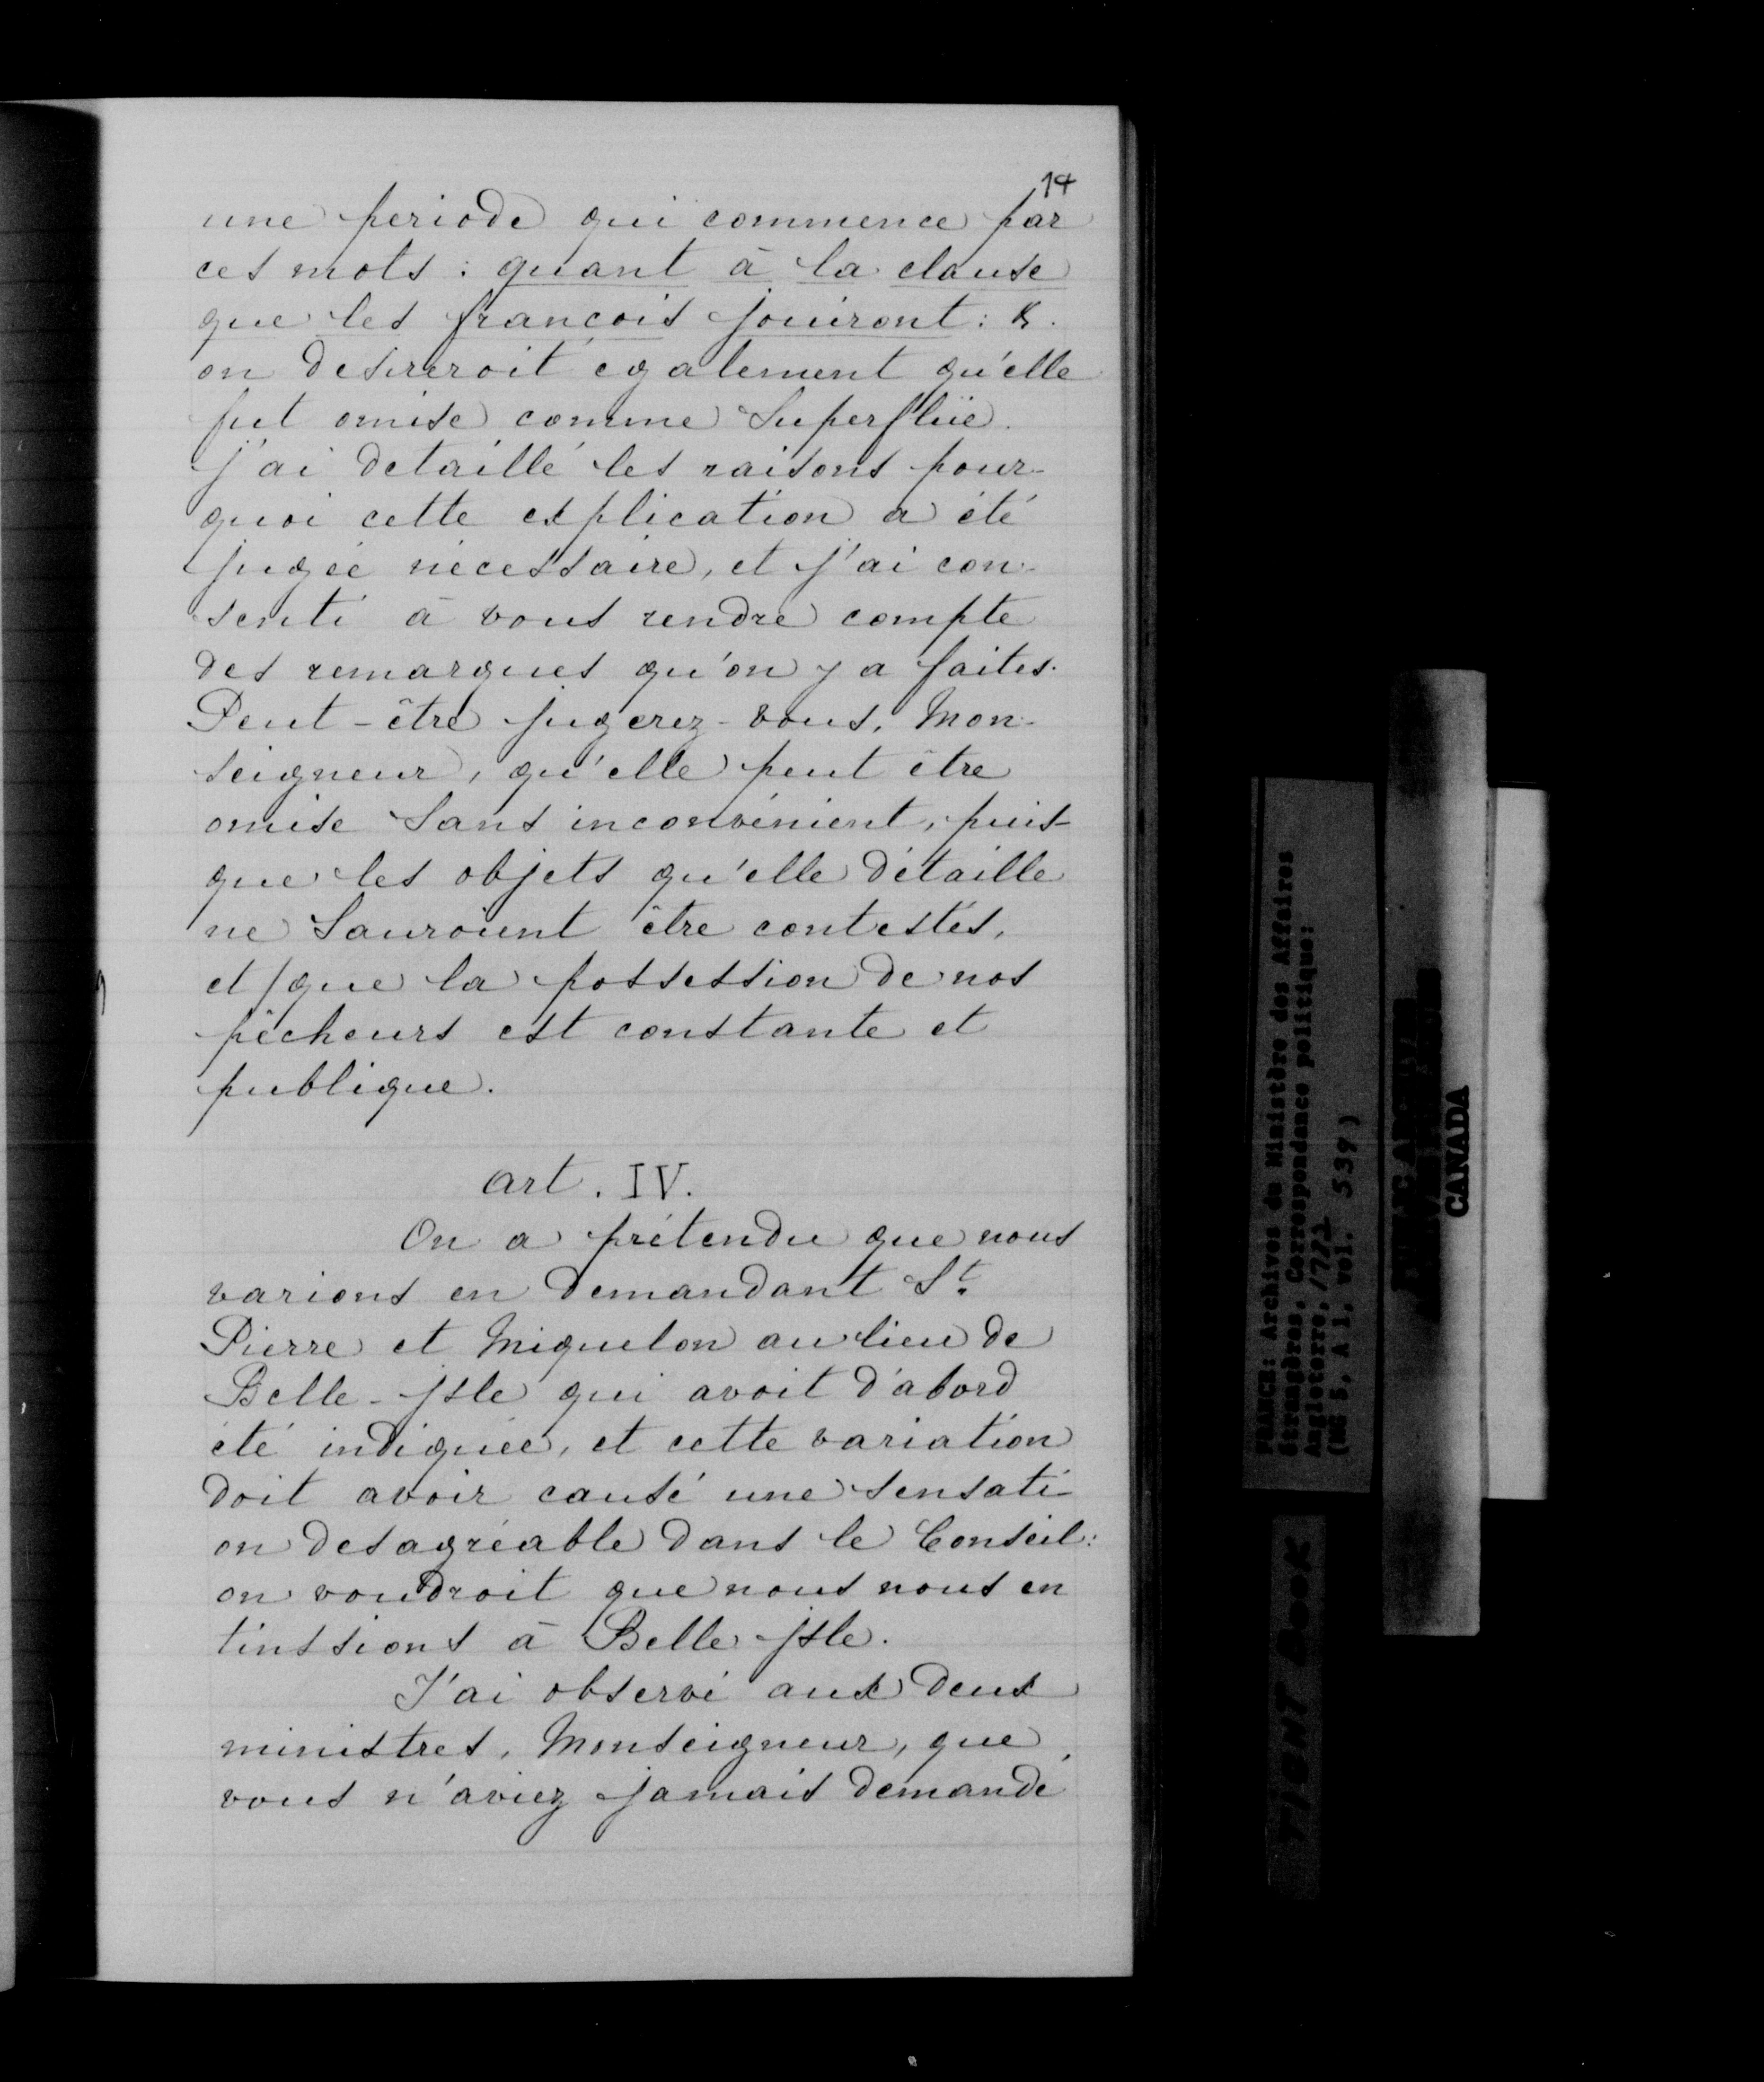 14
une periode qui commence par
ces mots : quant à la clause
que les françois jouiront : &.
on desireroit egalement qu'elle
fut omise comme Superflüe.
j'ai detaillé les raisons pour-
quoi cette explication a été
jugée nécessaire, et j'ai con-
senti à vous rendre compte
des remarques qu'on y a faites.
Peut-être jugerez-vous, Mon-
seigneur, qu'elle peut être
omise Sans inconvénient, puis-
que les objets qu'elle détaille
ne Sauroient être contestés,
et que la possession de nos
pêcheurs est constante et
publique.
art. IV.
On a prétendu que nous
varions en demandant St.
Pierre et Miquelon au lieu de
Belle-Isle qui avoit d'abord
été indiquée, et cette variation
doit avoir causé une sensati-
on desagréable dans le Conseil:
on voudroit que nous nous en
tinssions à Belle Isle.
J'ai observé aux deux
ministres, Monseigneur, que
vous n'aviez jamais demandé
FRANCE: Archives du Ministère des Affaires
étrangères, Correspondance politique:
Angleterre, 1772
(MG 5, A 1, vol. 539)
CANADA